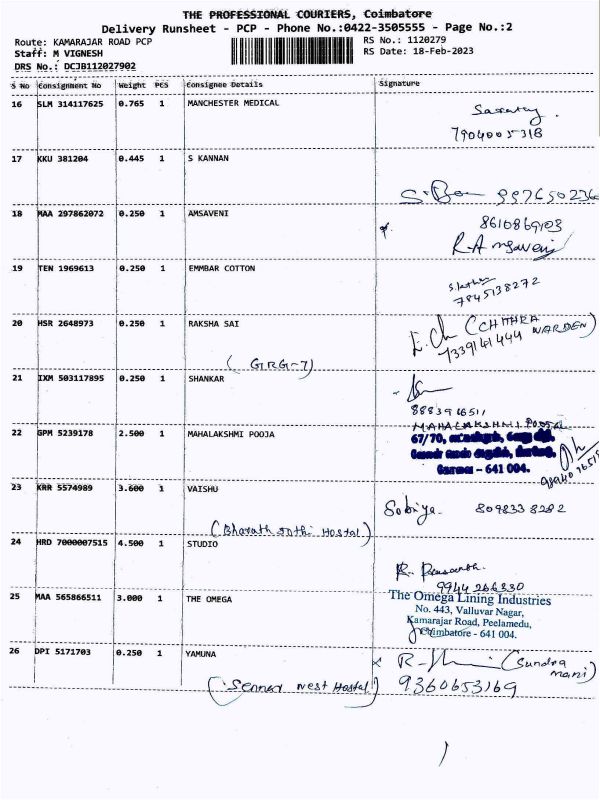 THE PROFESSIONAL COURIERS, Coimbatore
Delivery Runsheet - PCP - Phone No.:0422-3505555 - Page No.:2
Route: KAMARAJAR ROAD PCP
RS No.: 1120279
Staff: M VIGNESH
RS Date: 18-Feb-2023
DRS No.: DCJB112027902
S No Consignment No Weight PCS Consignee Details Signature
16 SLM 314117625 0.765 1 MANCHESTER MEDICAL
7904005318
17 KKU 381204 0.445 1 S KANNAN
18 MAA 297862072 0.250 1 AMSAVENI
8610869103
R. Amsaveni
19 TEN 1969613 0.250 1 EMMBAR COTTON
7845138272
20 HSR 2648973 0.250 1 RAKSHA SAI
(CHITHRA WARDEN)
7339141444
(GRG-7)
21 IXM 503117895 0.250 1 SHANKAR
8883976511
MAHALAKSHMI POOJA
22 GPM 5239178 2.500 1 MAHALAKSHMI POOJA
67/70,
- 641 004.
23 KRR 5574989 3.600 1 VAISHU
Sobiya. 8098338282
(Bharath Jothi Hostal)
24 HRD 7000007515 4.500 1 STUDIO
9944266330
25 MAA 565866511 3.000 1 THE OMEGA
The Omega Lining Industries
No. 443, Valluvar Nagar,
Kamarajar Road, Peelamedu,
Coimbatore - 641 004.
26 DPI 5171703 0.250 1 YAMUNA
(Sundra mani)
9360653169
nest Hostal)